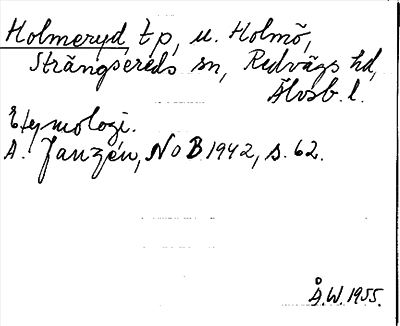 Holmeryd tp, u. Holmö,
Strängsereds sn, Redvägs hd,
Älvsb. l.
Etymologi.
A. Janzén, NoB 1942, s. 62.
Å.W. 1955.